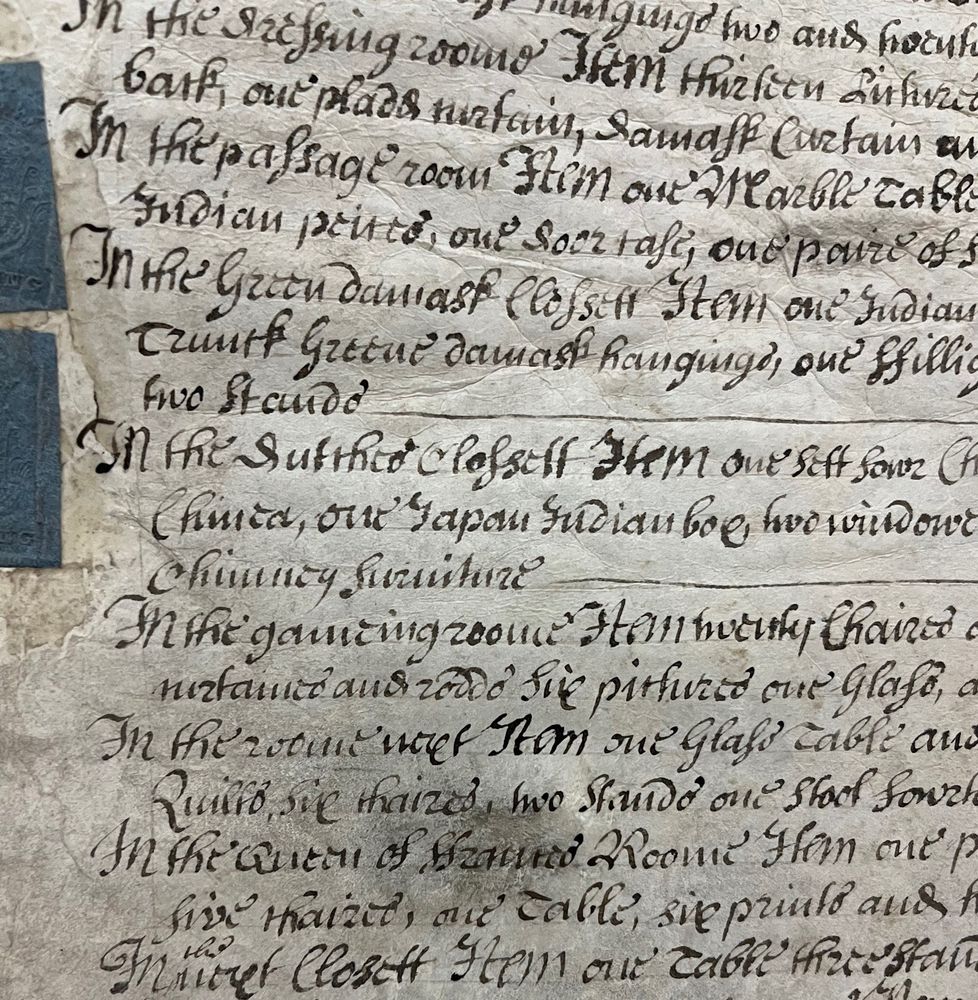 hangings two and twent
In the dressing roome Item thirteen Pictures
back, one pladd curtain, damask Curtain an
In the passage room Item one Marble Table
Indian peices, one door case, one paire of
In the Green damask Clossett Item one Indian
Trunck Greene damask hangings, one ffillig
two Stands
In the Dutches Clossett Item one sett fowr Ch
Chinea, one Japan Indian box, two windowe
Chimney furniture
In the gameing roome Item twenty Chaires
curtaines and rodds six pictures one Glass, a
In the roome next Item one Glass Table and
Quilts, six chaires, two Stands one Stool fowrt
In the Queen of ffrances Roome Item one p
five chaires, one Table, six prints and t
In the next Clossett Item one Table three stan